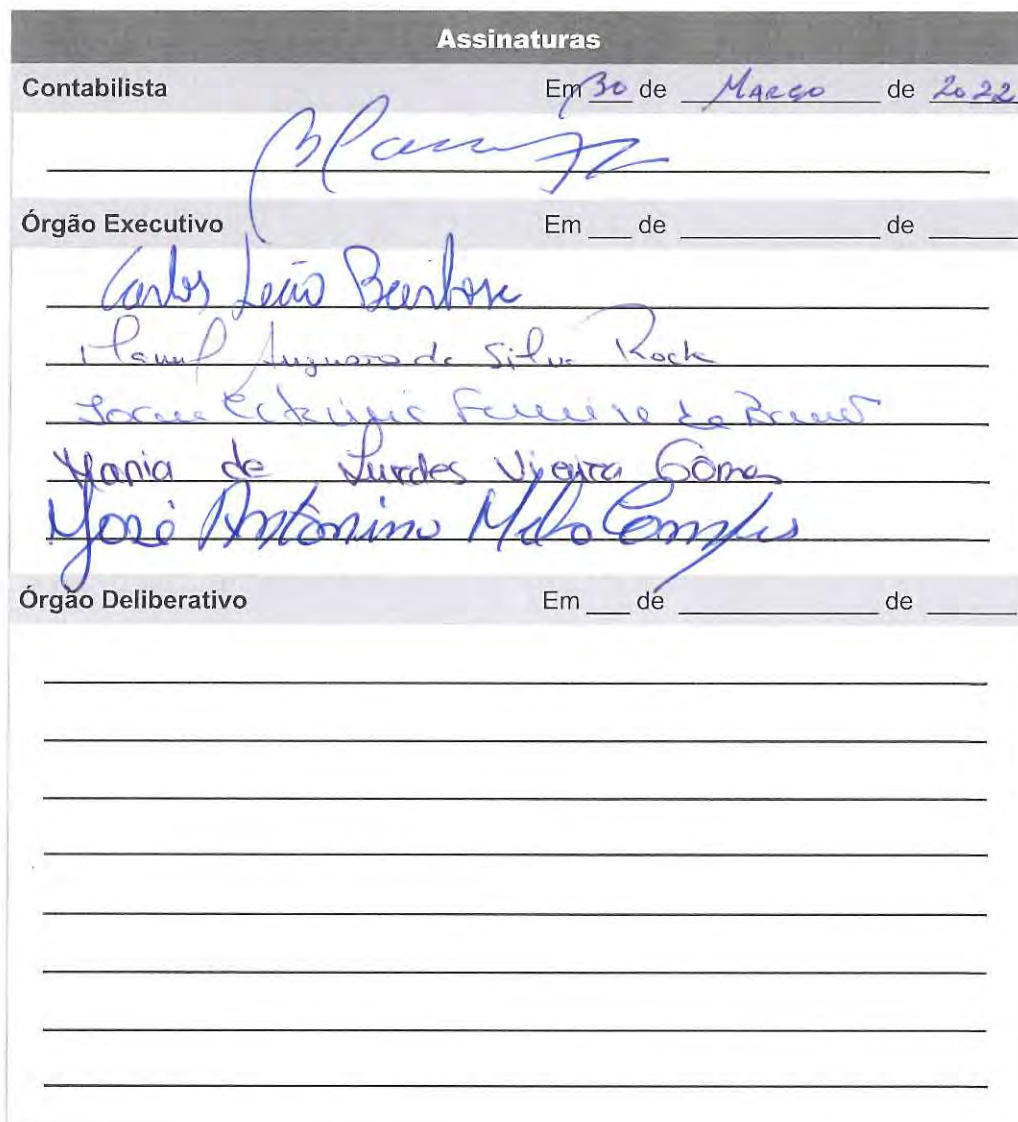 Assinaturas
Contabilista Em 30 de Março de 2022
Órgão Executivo Em ___ de ___ de ___
Carlos Leão Barbosa
Manuel Augusto da Silva Rocha
Ferreira de
Maria de Lurdes Vieira Gomes
José Antonino Melo Campos
Órgão Deliberativo Em ___ de ___ de ___